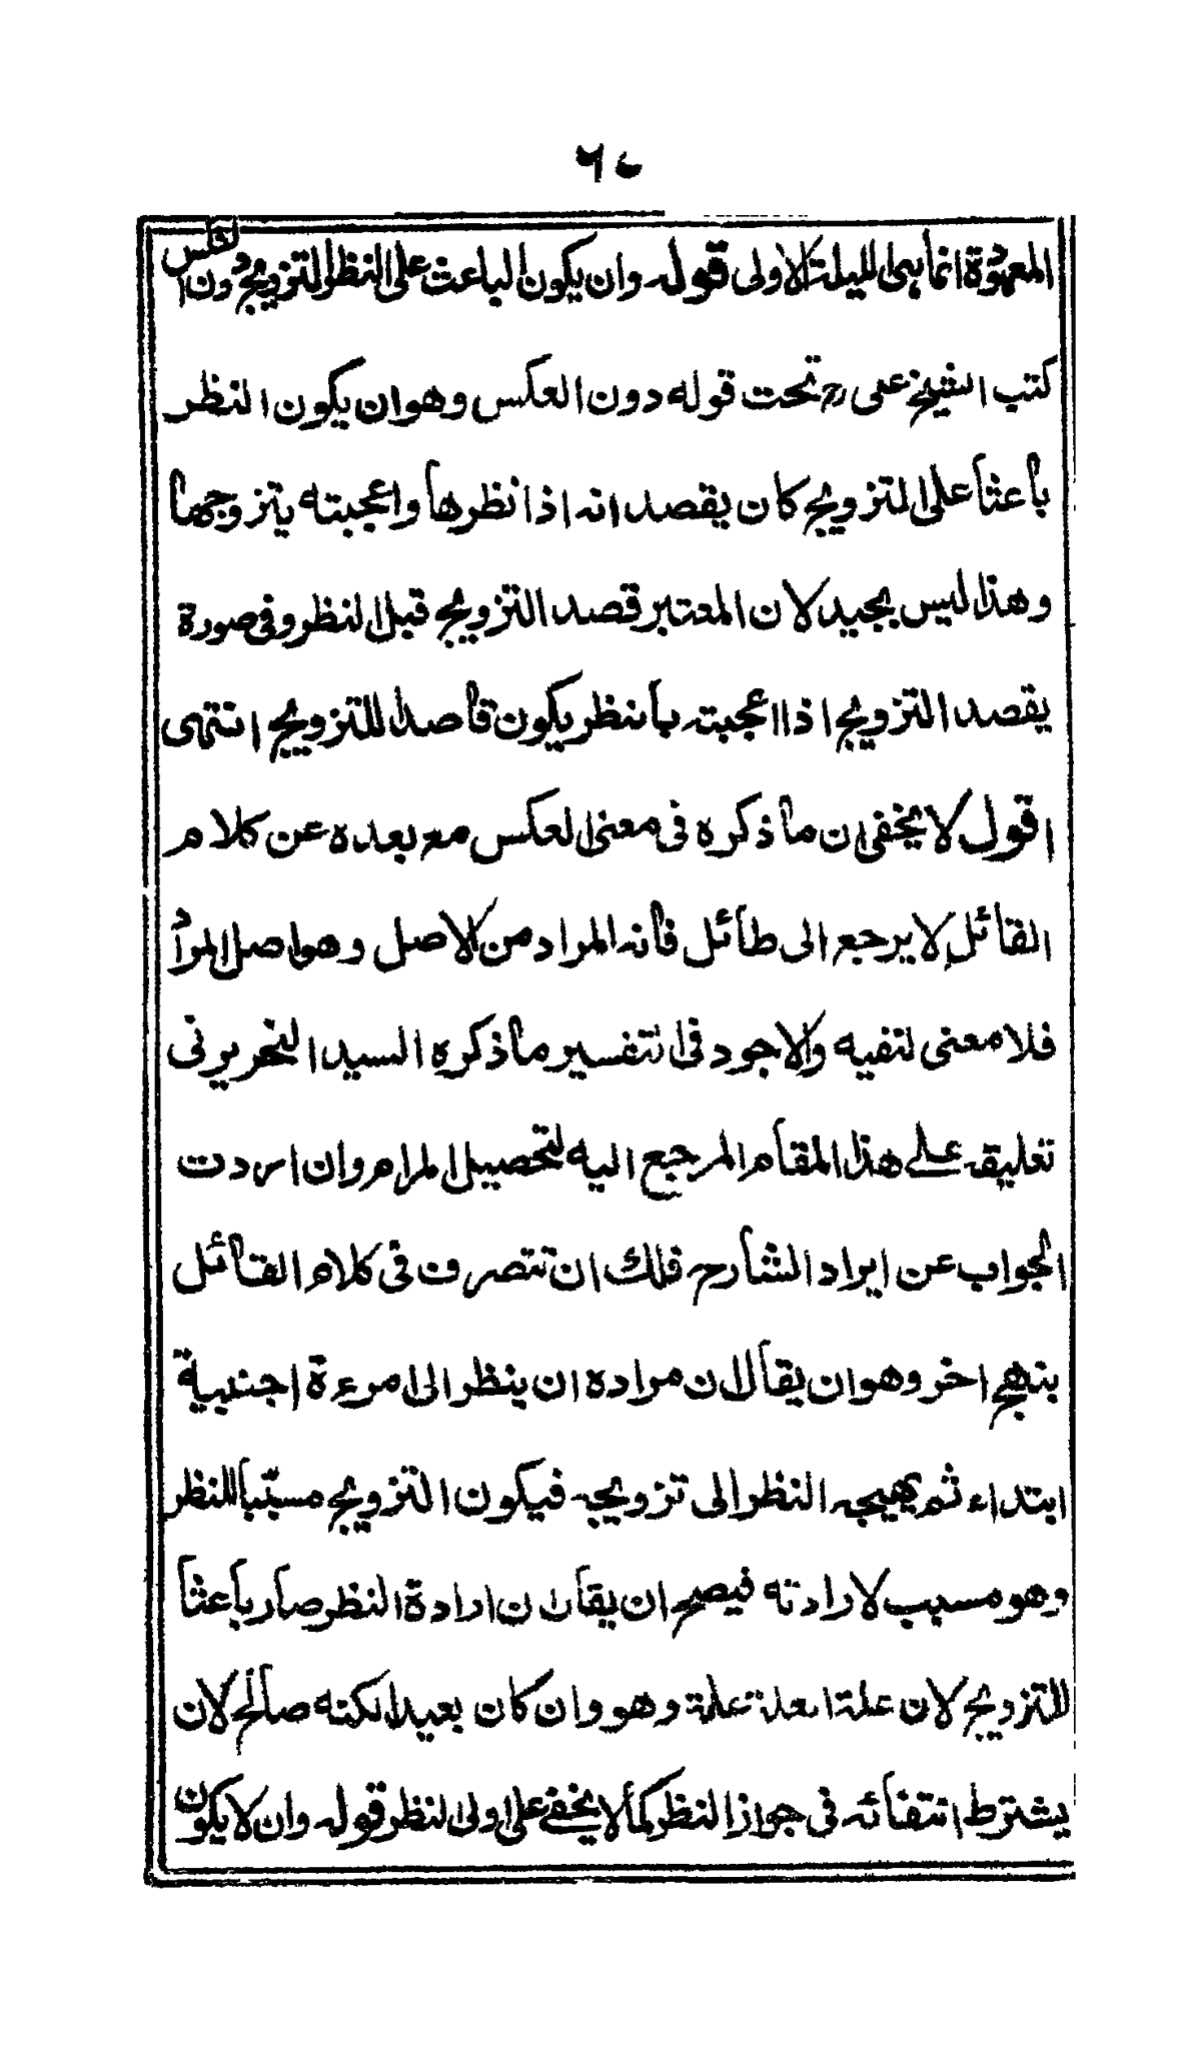 ٦٠
المعهودة انما هى لليلة الاولى قوله وان يكون الباعث على النظر التزويج دون العكس
كتب الشيخ على رح تحت قوله دون العكس وهو ان يكون النظر
باعثا على التزويج كان يقصد انه اذا نظرها واعجبته يتزوجها
وهذا ليس بجيد لان المعتبر قصد التزويج قبل النظر وفى صورة
يقصد التزويج اذا اعجبته بالنظر يكون قاصدا للتزويج انتهى
اقول لا يخفى ان ما ذكره فى معنى العكس مع بعده عن كلام
القائل لا يرجع الى طائل فانه المراد من الاصل وهو اصل المراد
فلا معنى لنفيه والاجود فى التفسير ما ذكره السيد النحرير فى
تعليقه على هذا المقام المرجع اليه لتحصيل المرام وان اردت
الجواب عن ايراد الشارح فلك ان تتصرف فى كلام القائل
بنهج اخر وهو ان يقال ان مراده ان ينظر الى امرءة اجنبية
ابتداء ثم يهيجه النظر الى تزويجه فيكون التزويج مسببا للنظر
وهو مسبب لارادته فيصح ان يقال ان ارادة النظر صار باعثا
للتزويج لان علة العلة علة وهو وان كان بعيدا لكنه صالح لان
يشترط انتفائه فى جواز النظر كما لا يخفى على اولى النظر قوله وان لا يكون